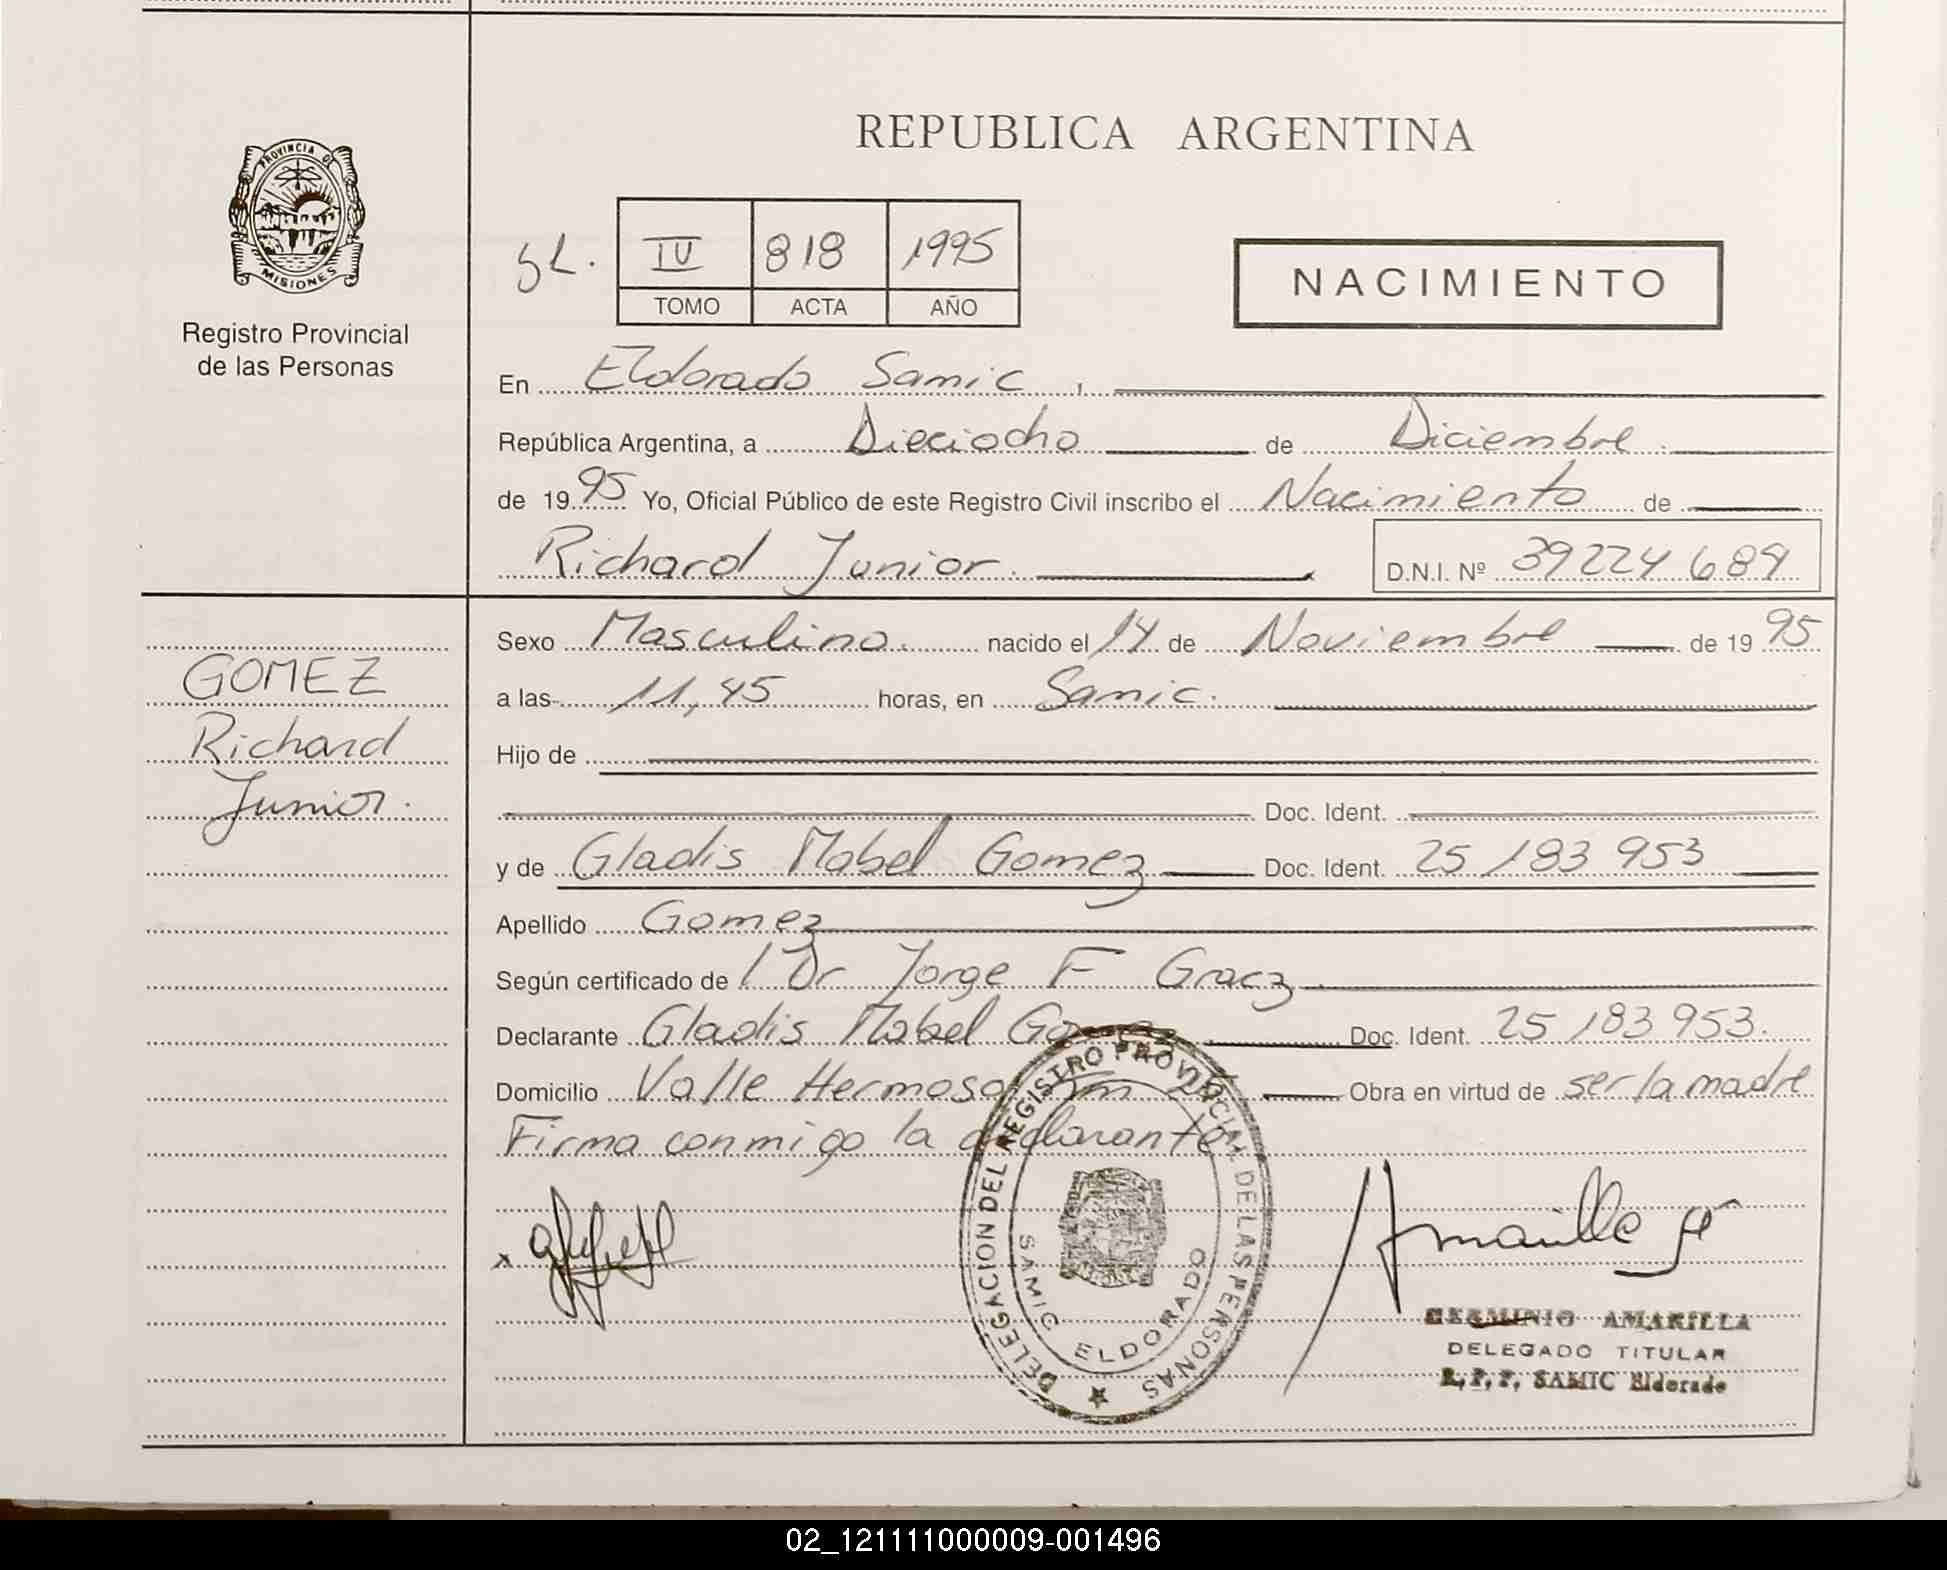 PROVINCIA DE
MISIONES
Registro Provincial
de las Personas
REPUBLICA ARGENTINA
IV 818 1995
TOMO ACTA AÑO
NACIMIENTO
En Eldorado Samic,
República Argentina, a Dieciocho de Diciembre.
de 1995 Yo, Oficial Público de este Registro Civil inscribo el Nacimiento de
Richard Junior. D.N.I. Nº 39224689
GOMEZ
Richard
Junior.
Sexo Masculino. nacido el 14 de Noviembre de 1995
a las 11,45 horas, en Samic.
Hijo de
Doc. Ident.
y de Gladis Mabel Gomez Doc. Ident. 25 183 953
Apellido Gomez
Según certificado de Dr Jorge F Gracz
Declarante Gladis Mabel Gomez Doc. Ident. 25 183 953.
Domicilio Valle Hermoso Km Obra en virtud de ser la madre
Firma conmigo la declarante
DELEGACION DEL REGISTRO PROVINCIAL DE LAS PERSONAS
SAMIC ELDORADO
Amarilla
GERMINIO AMARILLA
DELEGADO TITULAR
R. P. P. SAMIC Eldorado
02_121111000009-001496